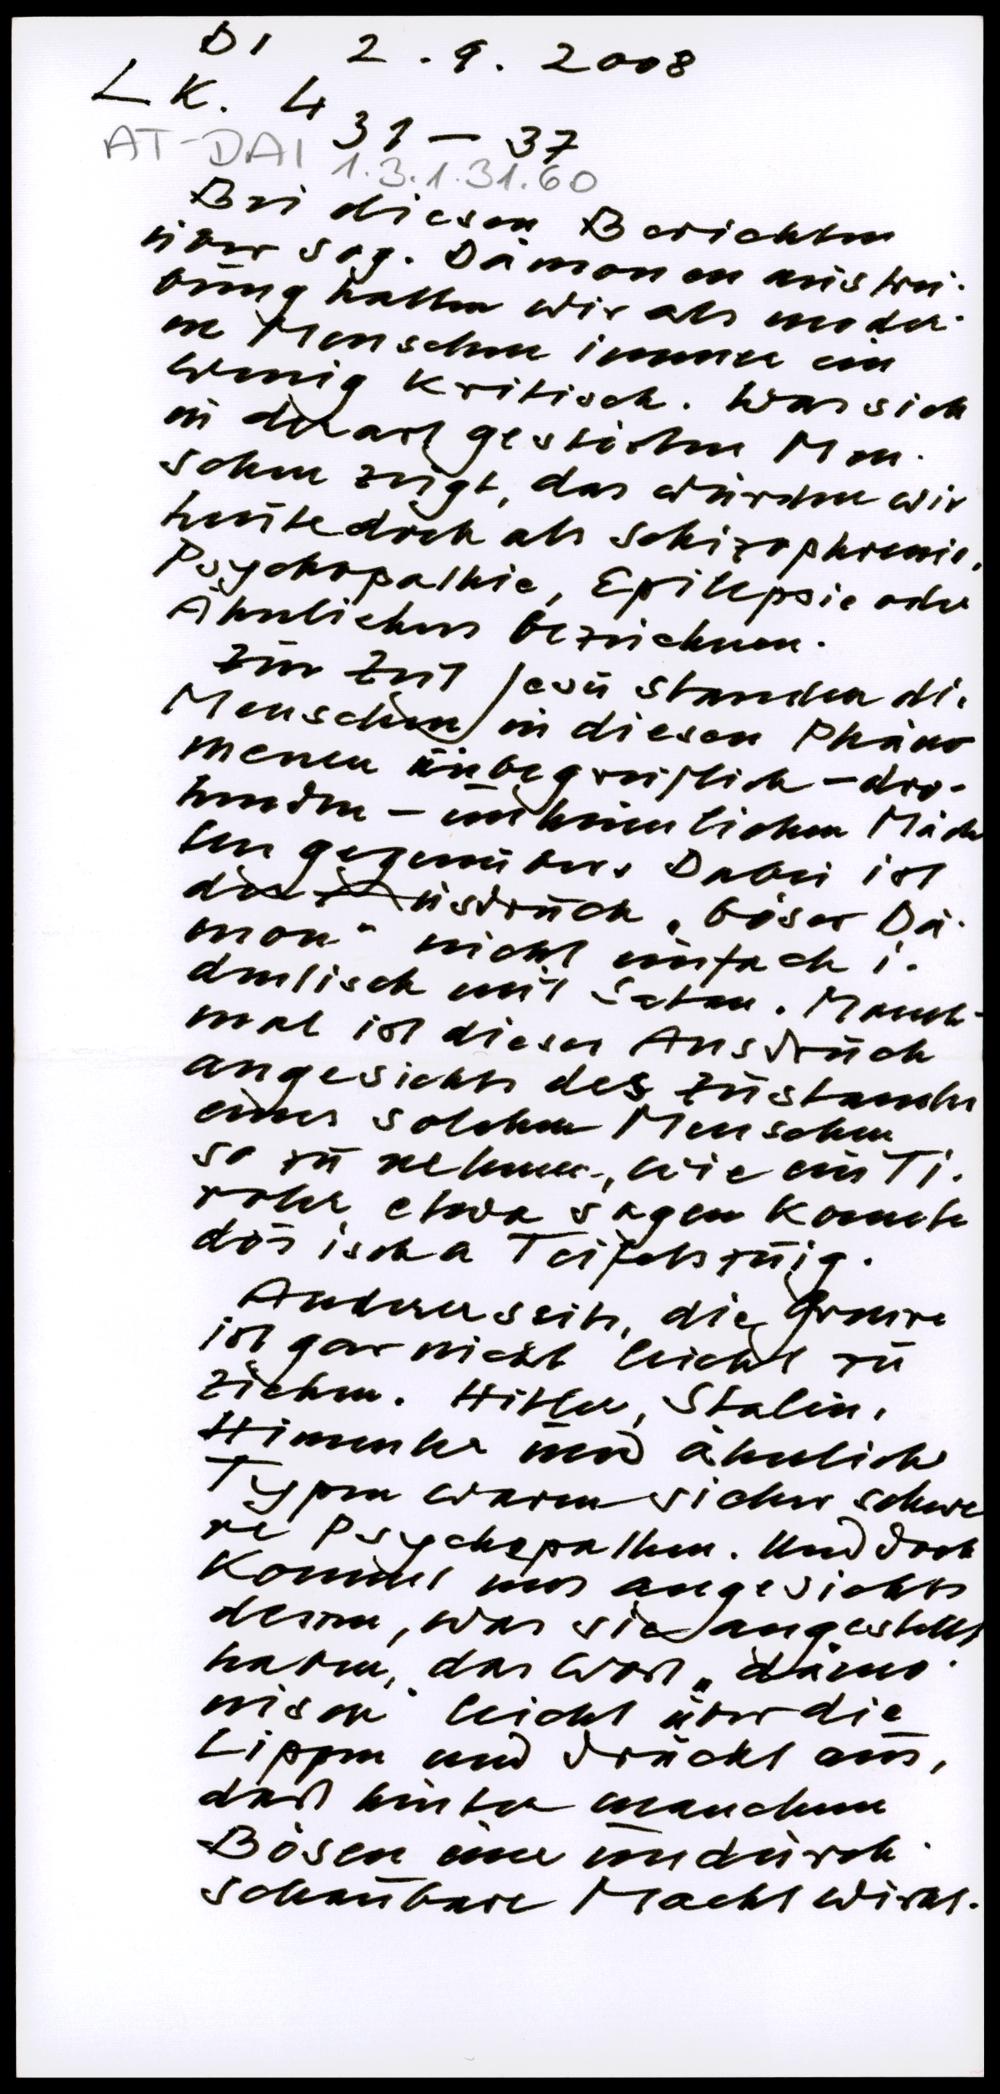 DI 2.9.2008
LK. 4 31-37
AT-DAI 1.3.1.31.60
Bei diesen Berichten
über sog. Dämonenaustrei-
bung halten wir als moder-
ne Menschen immer ein
wenig kritisch. Was sich
in derart gestörten Men-
schen zeigt, das würden wir
heute doch als Schizophrenie,
Psychopathie, Epilepsie oder
Ähnliches bezeichnen.
Zur Zeit Jesu standen die
Menschen in diesen Phäno
menen unbegreiflich-dro-
henden-unheimlichen Mäch
ten gegenüber. Dabei ist
der Ausdruck „böser Dä-
mon" nicht einfach i-
dentisch mit Satan. Manch-
mal ist dieser Ausdruck
angesichts des Zustandes
eines solchen Menschen
so zu nehmen, wie ein Ti-
roler etwa sagen könnte
dös isch a Teifelszuig.
Andererseits, die Grenze
ist gar nicht leicht zu
ziehen. Hitler, Stalin,
Himmler und ähnliche
Typen waren sicher schwe
re Psychopathen. Und doch
kommt uns angesichts
dessen, was sie angestellt
haben, das Wort „dämo-
nisch" leicht über die
Lippen und drückt aus,
daß hinter manchem
Bösen eine undurch-
schaubare Macht wirkt.